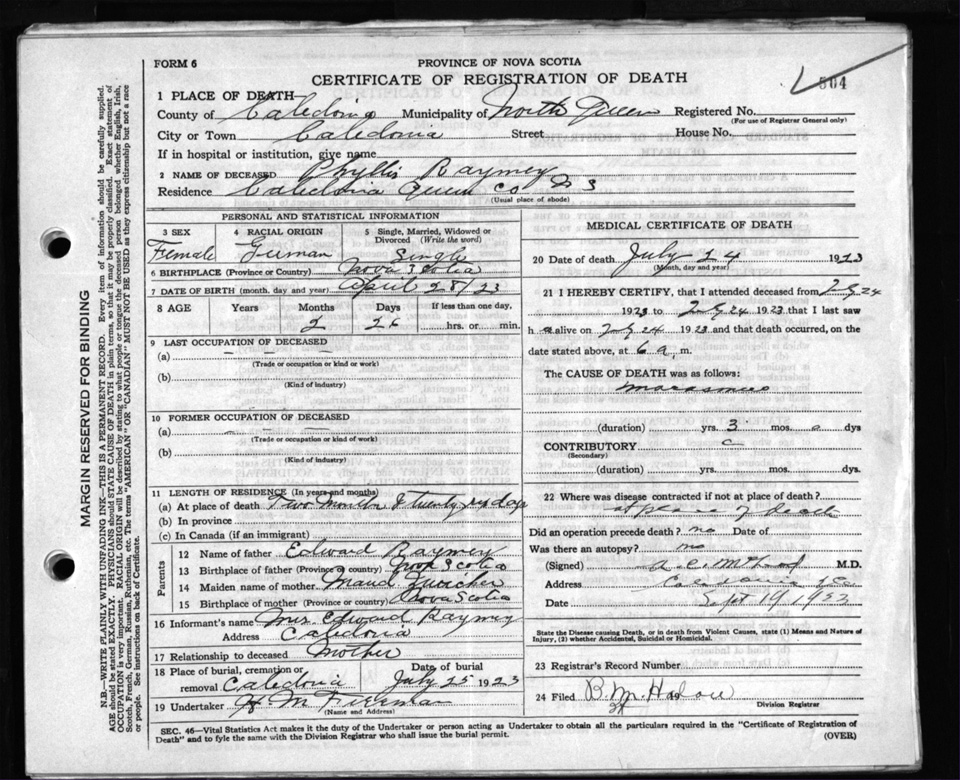 FORM 6
PROVINCE OF NOVA SCOTIA
CERTIFICATE OF REGISTRATION OF DEATH
564
1 PLACE OF DEATH
County of Caledonia Municipality of North Queen Registered No.
(For use of Registrar General only)
City or Town Caledonia Street House No.
If in hospital or institution, give name
2 NAME OF DECEASED Phyllis Raymey
Residence Caledonia Queen Co N S
(Usual place of abode)
PERSONAL AND STATISTICAL INFORMATION
3 SEX Female
4 RACIAL ORIGIN German
5 Single, Married, Widowed or Divorced (Write the word) Single
6 BIRTHPLACE (Province or Country) Nova Scotia
7 DATE OF BIRTH (month, day and year) April 28/23
8 AGE Years Months Days If less than one day,
2 26 hrs. or min.
9 LAST OCCUPATION OF DECEASED
(a) – – –
(Trade or occupation or kind of work)
(b)
(Kind of industry)
10 FORMER OCCUPATION OF DECEASED
(a) – – –
(Trade or occupation or kind of work)
(b)
(Kind of industry)
11 LENGTH OF RESIDENCE (In years and months)
(a) At place of death Two Months & twenty six days
(b) In province
(c) In Canada (if an immigrant)
Parents
12 Name of father Edward Raymey
13 Birthplace of father (Province or country) Nova Scotia
14 Maiden name of mother Maud
15 Birthplace of mother (Province or country) Nova Scotia
16 Informant's name Mrs Edward Raymey
Address Caledonia
17 Relationship to deceased Mother
18 Place of burial, cremation or removal Caledonia Date of burial July 25 1923
19 Undertaker H M Freeman
(Name and Address)
MEDICAL CERTIFICATE OF DEATH
20 Date of death July 24 1923
(Month, day and year)
21 I HEREBY CERTIFY, that I attended deceased from July 24
1923 to July 24 1923 that I last saw
h alive on July 24 1923 and that death occurred, on the
date stated above, at 6 a. m.
The CAUSE OF DEATH was as follows:
(duration) yrs. 3 mos. dys
CONTRIBUTORY
(Secondary)
(duration) yrs. mos. dys.
22 Where was disease contracted if not at place of death?
at place of death
Did an operation precede death? no Date of
Was there an autopsy? no
(Signed) M.D.
Address Caledonia
Date Sept 19 1923
State the Disease causing Death, or in death from Violent Causes, state (1) Means and Nature of
Injury, (2) whether Accidental, Suicidal or Homicidal.
23 Registrar's Record Number
24 Filed B. M. Harlow
Division Registrar
SEC. 46—Vital Statistics Act makes it the duty of the Undertaker or person acting as Undertaker to obtain all the particulars required in the "Certificate of Registration of
Death" and to fyle the same with the Division Registrar who shall issue the burial permit. (OVER)
MARGIN RESERVED FOR BINDING
N.B.—WRITE PLAINLY WITH UNFADING INK—THIS IS A PERMANENT RECORD. Every item of information should be carefully supplied.
AGE should be stated EXACTLY. PHYSICIANS should STATE CAUSE OF DEATH in plain terms, so that it may be properly classified. Exact statement of
OCCUPATION is very important. RACIAL ORIGIN will be described by stating to what people or tongue the deceased person belonged whether English, Irish,
Scotch, French, German, Russian, Ruthenian, etc. The terms "AMERICAN" OR "CANADIAN" MUST NOT BE USED as they express citizenship but not a race
or people. See instructions on back of Certificate.